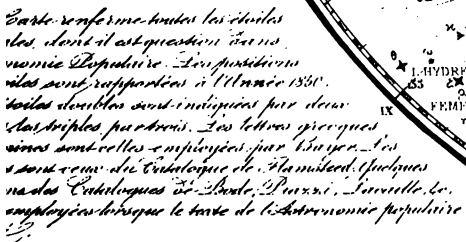 Carte renferme toutes les étoiles
les, dont il est question dans
nomie Populaire. Les positions
oiles sont rapportées à l'Année 1880.
toiles doubles sont indiquées par deux
les triples par trois. Les lettres grecques
aines sont celles employées par Bayer. Les
s sont ceux du Catalogue de Flamsteed. Quelques
ns des Catalogues de Bode, Piazzi, Lacaille, &c.
employées lorsque le texte de l'Astronomie populaire
θ
L'HYDRE
IX
FEM